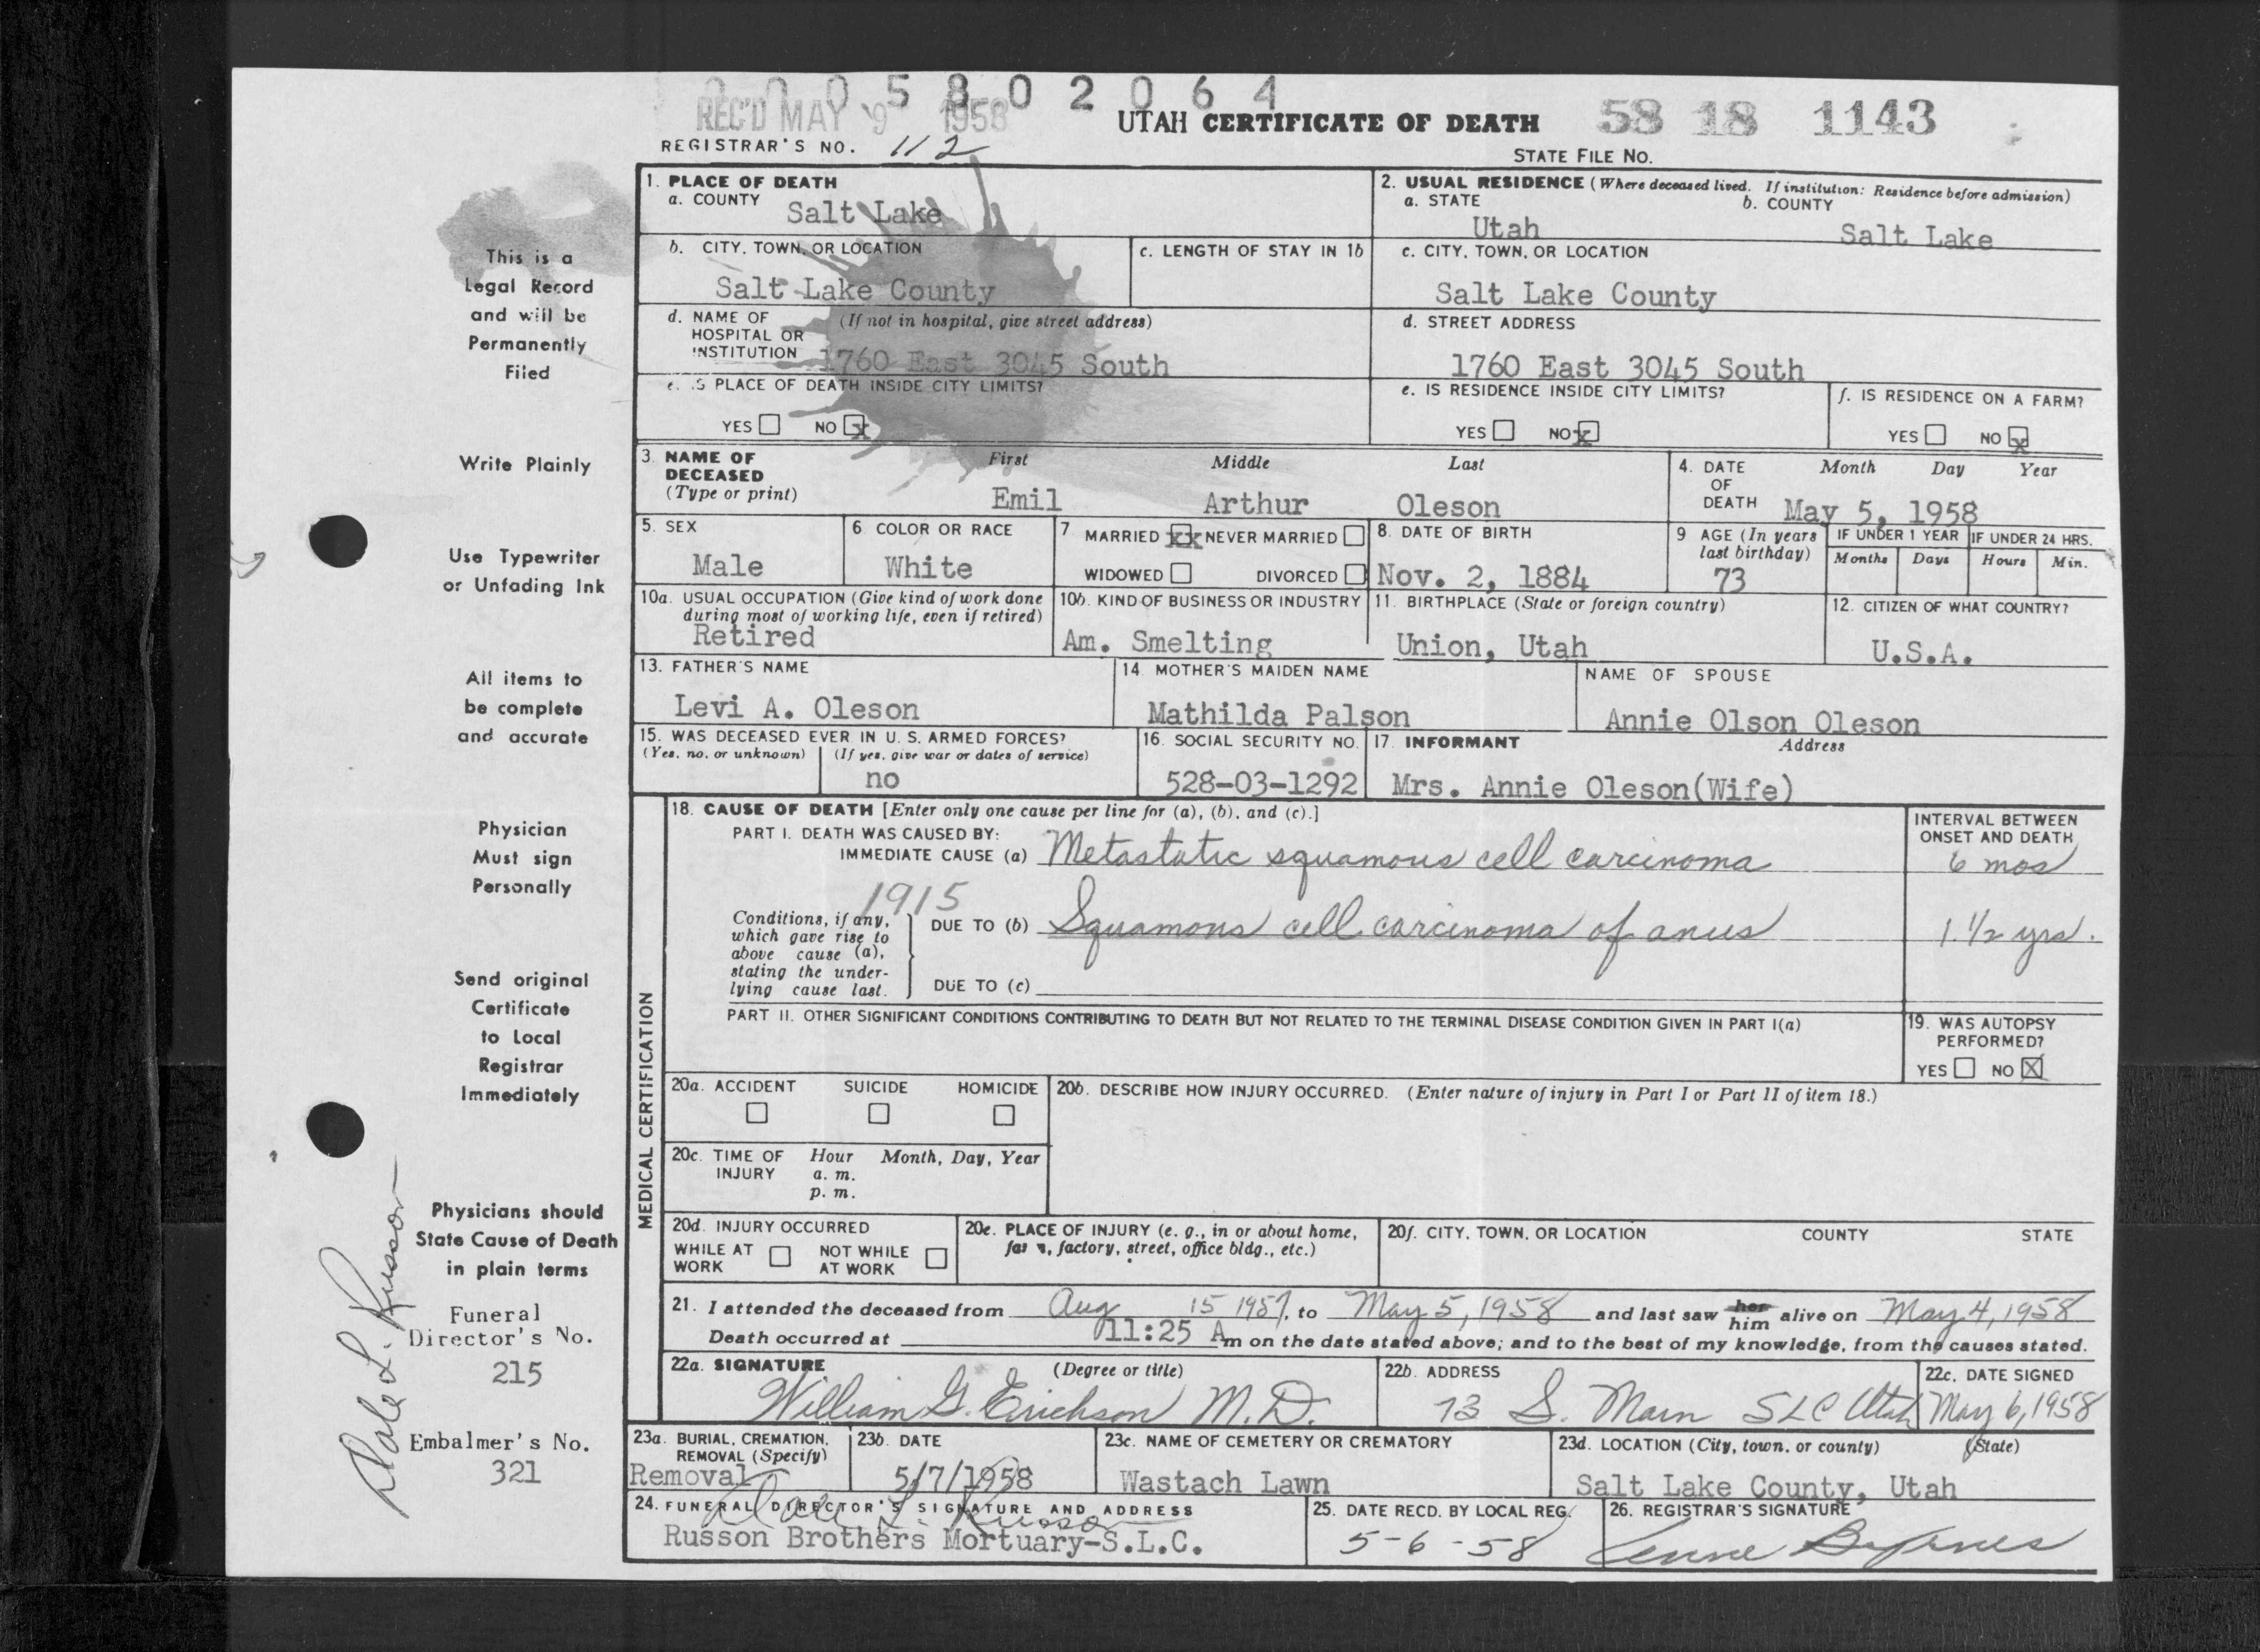 0 0 0 5 8 0 2 0 6 4
REC'D MAY 9 1958
UTAH CERTIFICATE OF DEATH
58 18 1143
REGISTRAR'S NO. 112
STATE FILE NO.
This is a
Legal Record
and will be
Permanently
Filed
Write Plainly
Use Typewriter
or Unfading Ink
All items to
be complete
and accurate
Physician
Must sign
Personally
Send original
Certificate
to Local
Registrar
Immediately
Physicians should
State Cause of Death
in plain terms
Funeral
Director's No.
215
Embalmer's No.
321
Dale L. Russon
1. PLACE OF DEATH
a. COUNTY Salt Lake
2. USUAL RESIDENCE (Where deceased lived. If institution: Residence before admission)
a. STATE Utah b. COUNTY Salt Lake
b. CITY, TOWN, OR LOCATION Salt Lake County
c. LENGTH OF STAY IN 1b
c. CITY, TOWN, OR LOCATION Salt Lake County
d. NAME OF HOSPITAL OR INSTITUTION (If not in hospital, give street address)
1760 East 3045 South
d. STREET ADDRESS
1760 East 3045 South
e. IS PLACE OF DEATH INSIDE CITY LIMITS?
YES NO x
e. IS RESIDENCE INSIDE CITY LIMITS?
YES NO x
f. IS RESIDENCE ON A FARM?
YES NO x
3. NAME OF DECEASED (Type or print)
First Middle Last
Emil Arthur Oleson
4. DATE OF DEATH Month Day Year
May 5, 1958
5. SEX
Male
6 COLOR OR RACE
White
7 MARRIED xx NEVER MARRIED
WIDOWED DIVORCED
8. DATE OF BIRTH
Nov. 2, 1884
9 AGE (In years last birthday)
73
IF UNDER 1 YEAR
Months Days
IF UNDER 24 HRS.
Hours Min.
10a. USUAL OCCUPATION (Give kind of work done during most of working life, even if retired)
Retired
10b. KIND OF BUSINESS OR INDUSTRY
Am. Smelting
11. BIRTHPLACE (State or foreign country)
Union, Utah
12. CITIZEN OF WHAT COUNTRY?
U.S.A.
13. FATHER'S NAME
Levi A. Oleson
14. MOTHER'S MAIDEN NAME
Mathilda Palson
NAME OF SPOUSE
Annie Olson Oleson
15. WAS DECEASED EVER IN U. S. ARMED FORCES?
(Yes, no, or unknown) (If yes, give war or dates of service)
no
16. SOCIAL SECURITY NO.
528-03-1292
17. INFORMANT Address
Mrs. Annie Oleson(Wife)
MEDICAL CERTIFICATION
18. CAUSE OF DEATH [Enter only one cause per line for (a), (b), and (c).]
INTERVAL BETWEEN ONSET AND DEATH
PART I. DEATH WAS CAUSED BY:
IMMEDIATE CAUSE (a) Metastatic squamous cell carcinoma 6 mos
1915
Conditions, if any, which gave rise to above cause (a), stating the underlying cause last.
DUE TO (b) Squamous cell carcinoma of anus 1 1/2 yrs.
DUE TO (c)
PART II. OTHER SIGNIFICANT CONDITIONS CONTRIBUTING TO DEATH BUT NOT RELATED TO THE TERMINAL DISEASE CONDITION GIVEN IN PART I(a)
19. WAS AUTOPSY PERFORMED?
YES NO X
20a. ACCIDENT SUICIDE HOMICIDE
20b. DESCRIBE HOW INJURY OCCURRED. (Enter nature of injury in Part I or Part II of item 18.)
20c. TIME OF INJURY Hour Month, Day, Year
a. m.
p. m.
20d. INJURY OCCURRED
WHILE AT WORK NOT WHILE AT WORK
20e. PLACE OF INJURY (e. g., in or about home, farm, factory, street, office bldg., etc.)
20f. CITY, TOWN, OR LOCATION COUNTY STATE
21. I attended the deceased from Aug 15 1957, to May 5, 1958 and last saw her him alive on May 4, 1958
Death occurred at 11:25 A m on the date stated above; and to the best of my knowledge, from the causes stated.
22a. SIGNATURE (Degree or title)
William G. Erickson M.D.
22b. ADDRESS
73 S. Main SLC Utah
22c. DATE SIGNED
May 6, 1958
23a. BURIAL, CREMATION, REMOVAL (Specify)
Removal
23b. DATE
5/7/1958
23c. NAME OF CEMETERY OR CREMATORY
Wastach Lawn
23d. LOCATION (City, town, or county) (State)
Salt Lake County, Utah
24. FUNERAL DIRECTOR'S SIGNATURE AND ADDRESS
Dale L. Russon
Russon Brothers Mortuary-S.L.C.
25. DATE RECD. BY LOCAL REG.
5-6-58
26. REGISTRAR'S SIGNATURE